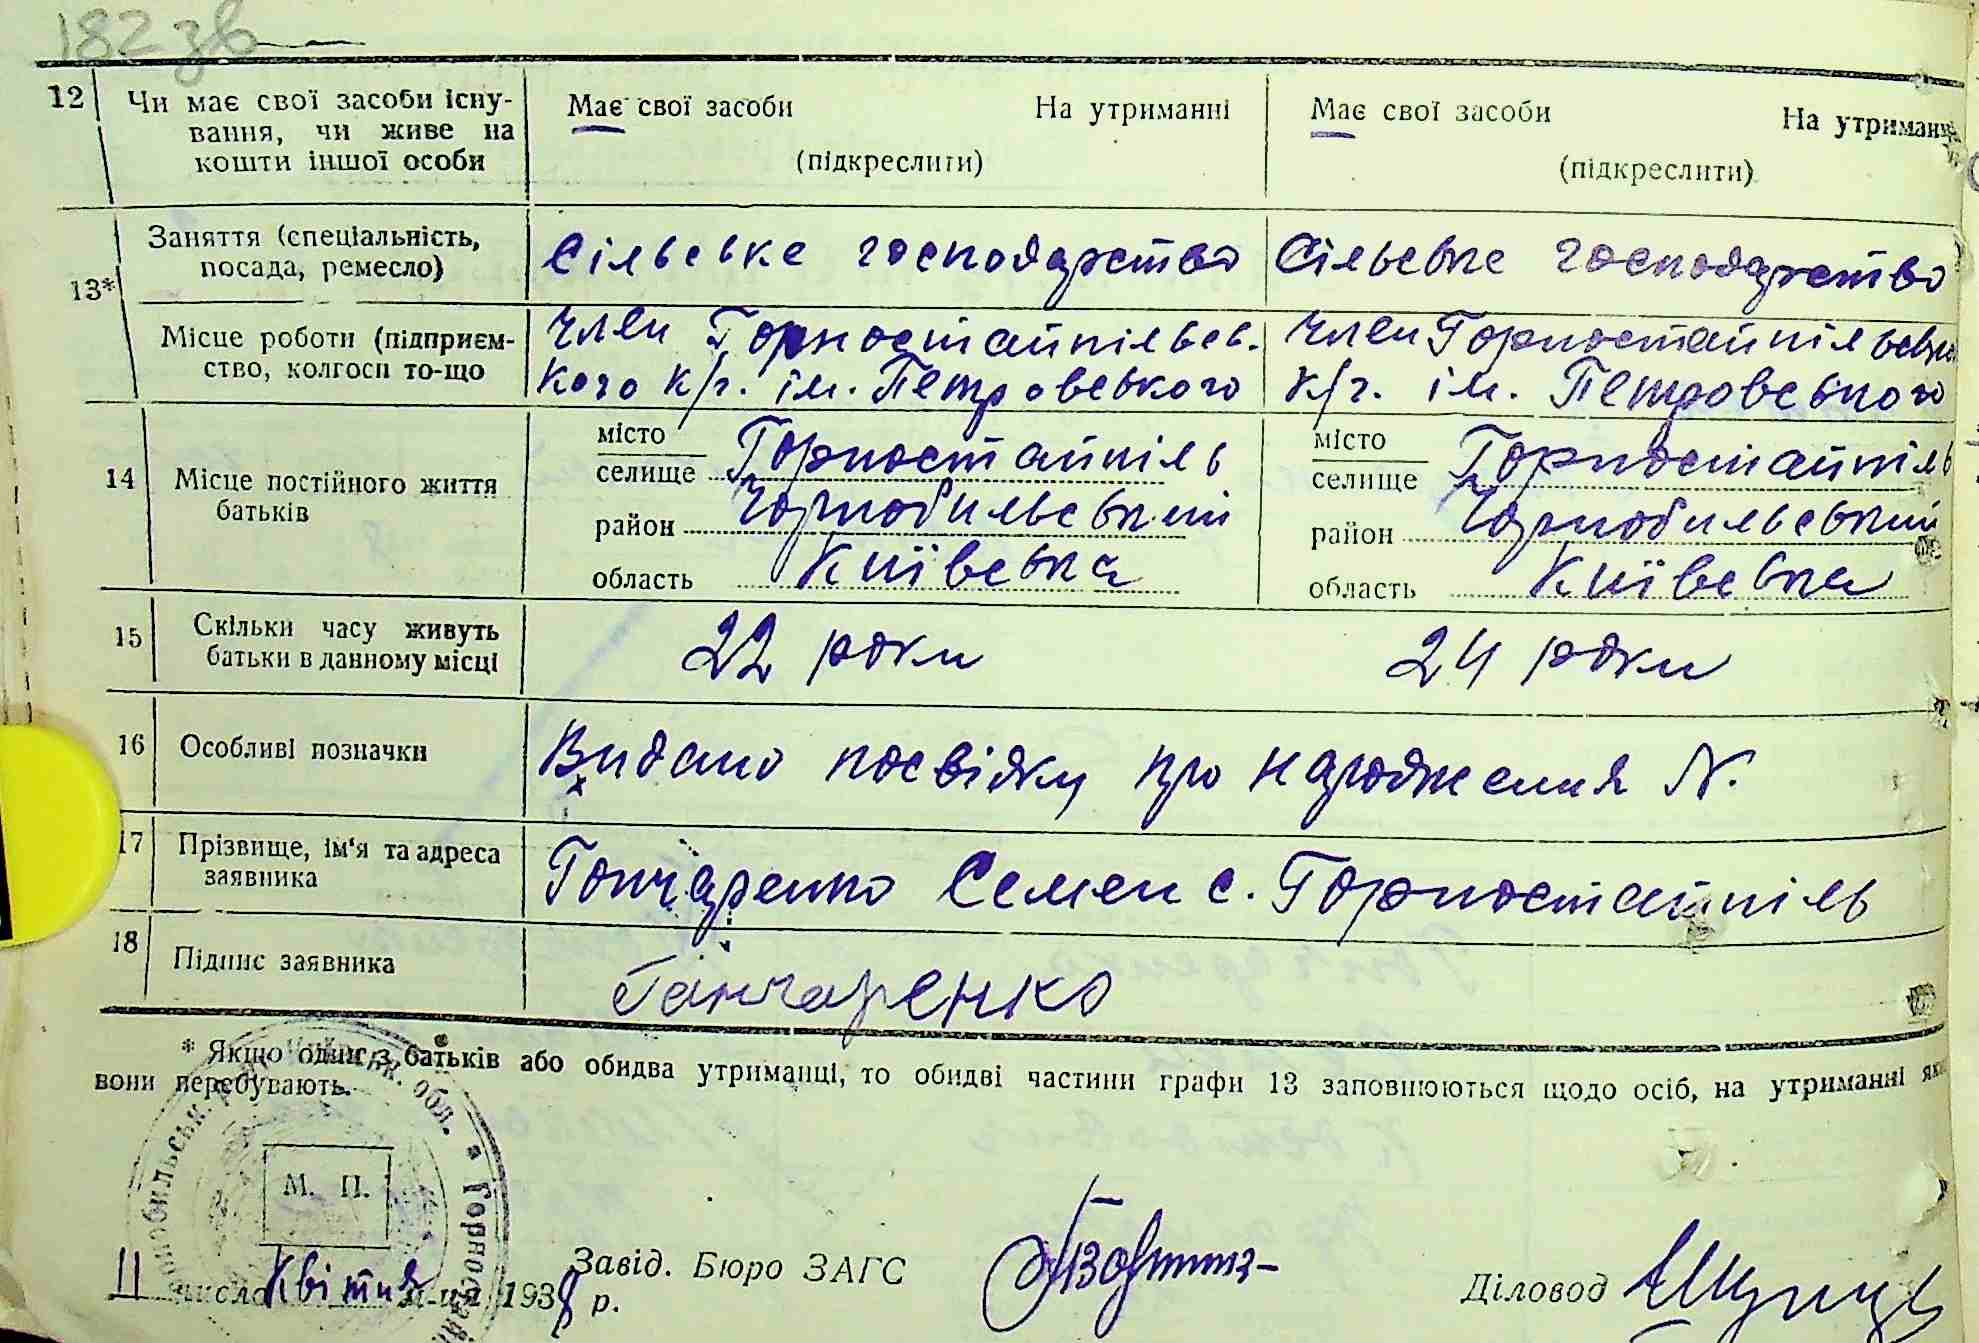 182 зв
12 Чи має свої засоби існу- Має свої засоби На утриманні Має свої засоби На утриманн
вання, чи живе на
кошти іншої особи (підкреслити) (підкреслити)
13* Заняття (спеціальність, Сільське господарство Сільське господарство
посада, ремесло)
Місце роботи (підприєм- Член Горностайпільсь- Член Горностайпільськ
ство, колгосп то-що кого к/г. ім. Петровського к/г. ім. Петровського
14 Місце постійного життя місто Горностайпіль місто Горностайпіль
батьків селище селище
район Чорнобильський район Чорнобильський
область Київська область Київська
15 Скільки часу живуть 22 роки 24 роки
батьки в данному місці
16 Особливі позначки Видано посвідку про народження N.
17 Прізвище, ім'я та адреса Гончаренко Семен с. Горностайпіль
заявника
18 Підпис заявника Ганчаренко
* Якщо одне з батьків або обидва утриманці, то обидві частини графи 13 заповнюються щодо осіб, на утриманні яки
вони перебувають.
М. П.
11 число Квітня м-ця 1938 р. Завід. Бюро ЗАГС Діловод